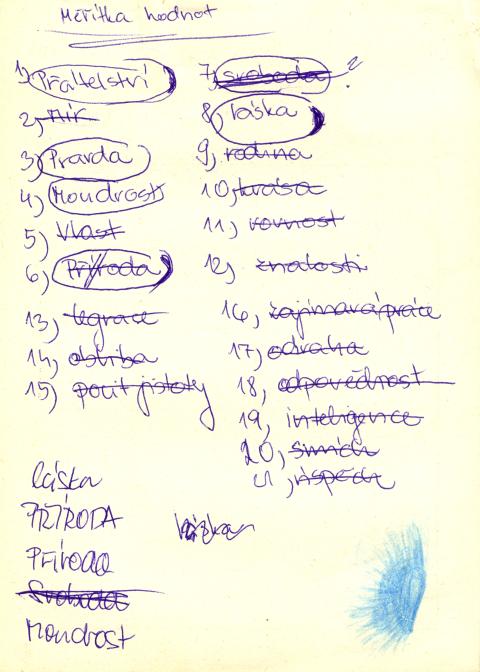 Měřítka hodnot
1) Přátelství
2) Mír
3) Pravda
4) Moudrost
5) Vlast
6) Příroda
13) legrace
14) obliba
15) pocit jistoty
7, svoboda ?
8, láska
9, rodina
10, krása
11) rovnost
12) znalosti
16, zajímavá práce
17, odvaha
18, odpovědnost
19, inteligence
20, smích
21, úspěch
láska
PŘÍRODA
Příroda
Svoboda
Moudrost
láska